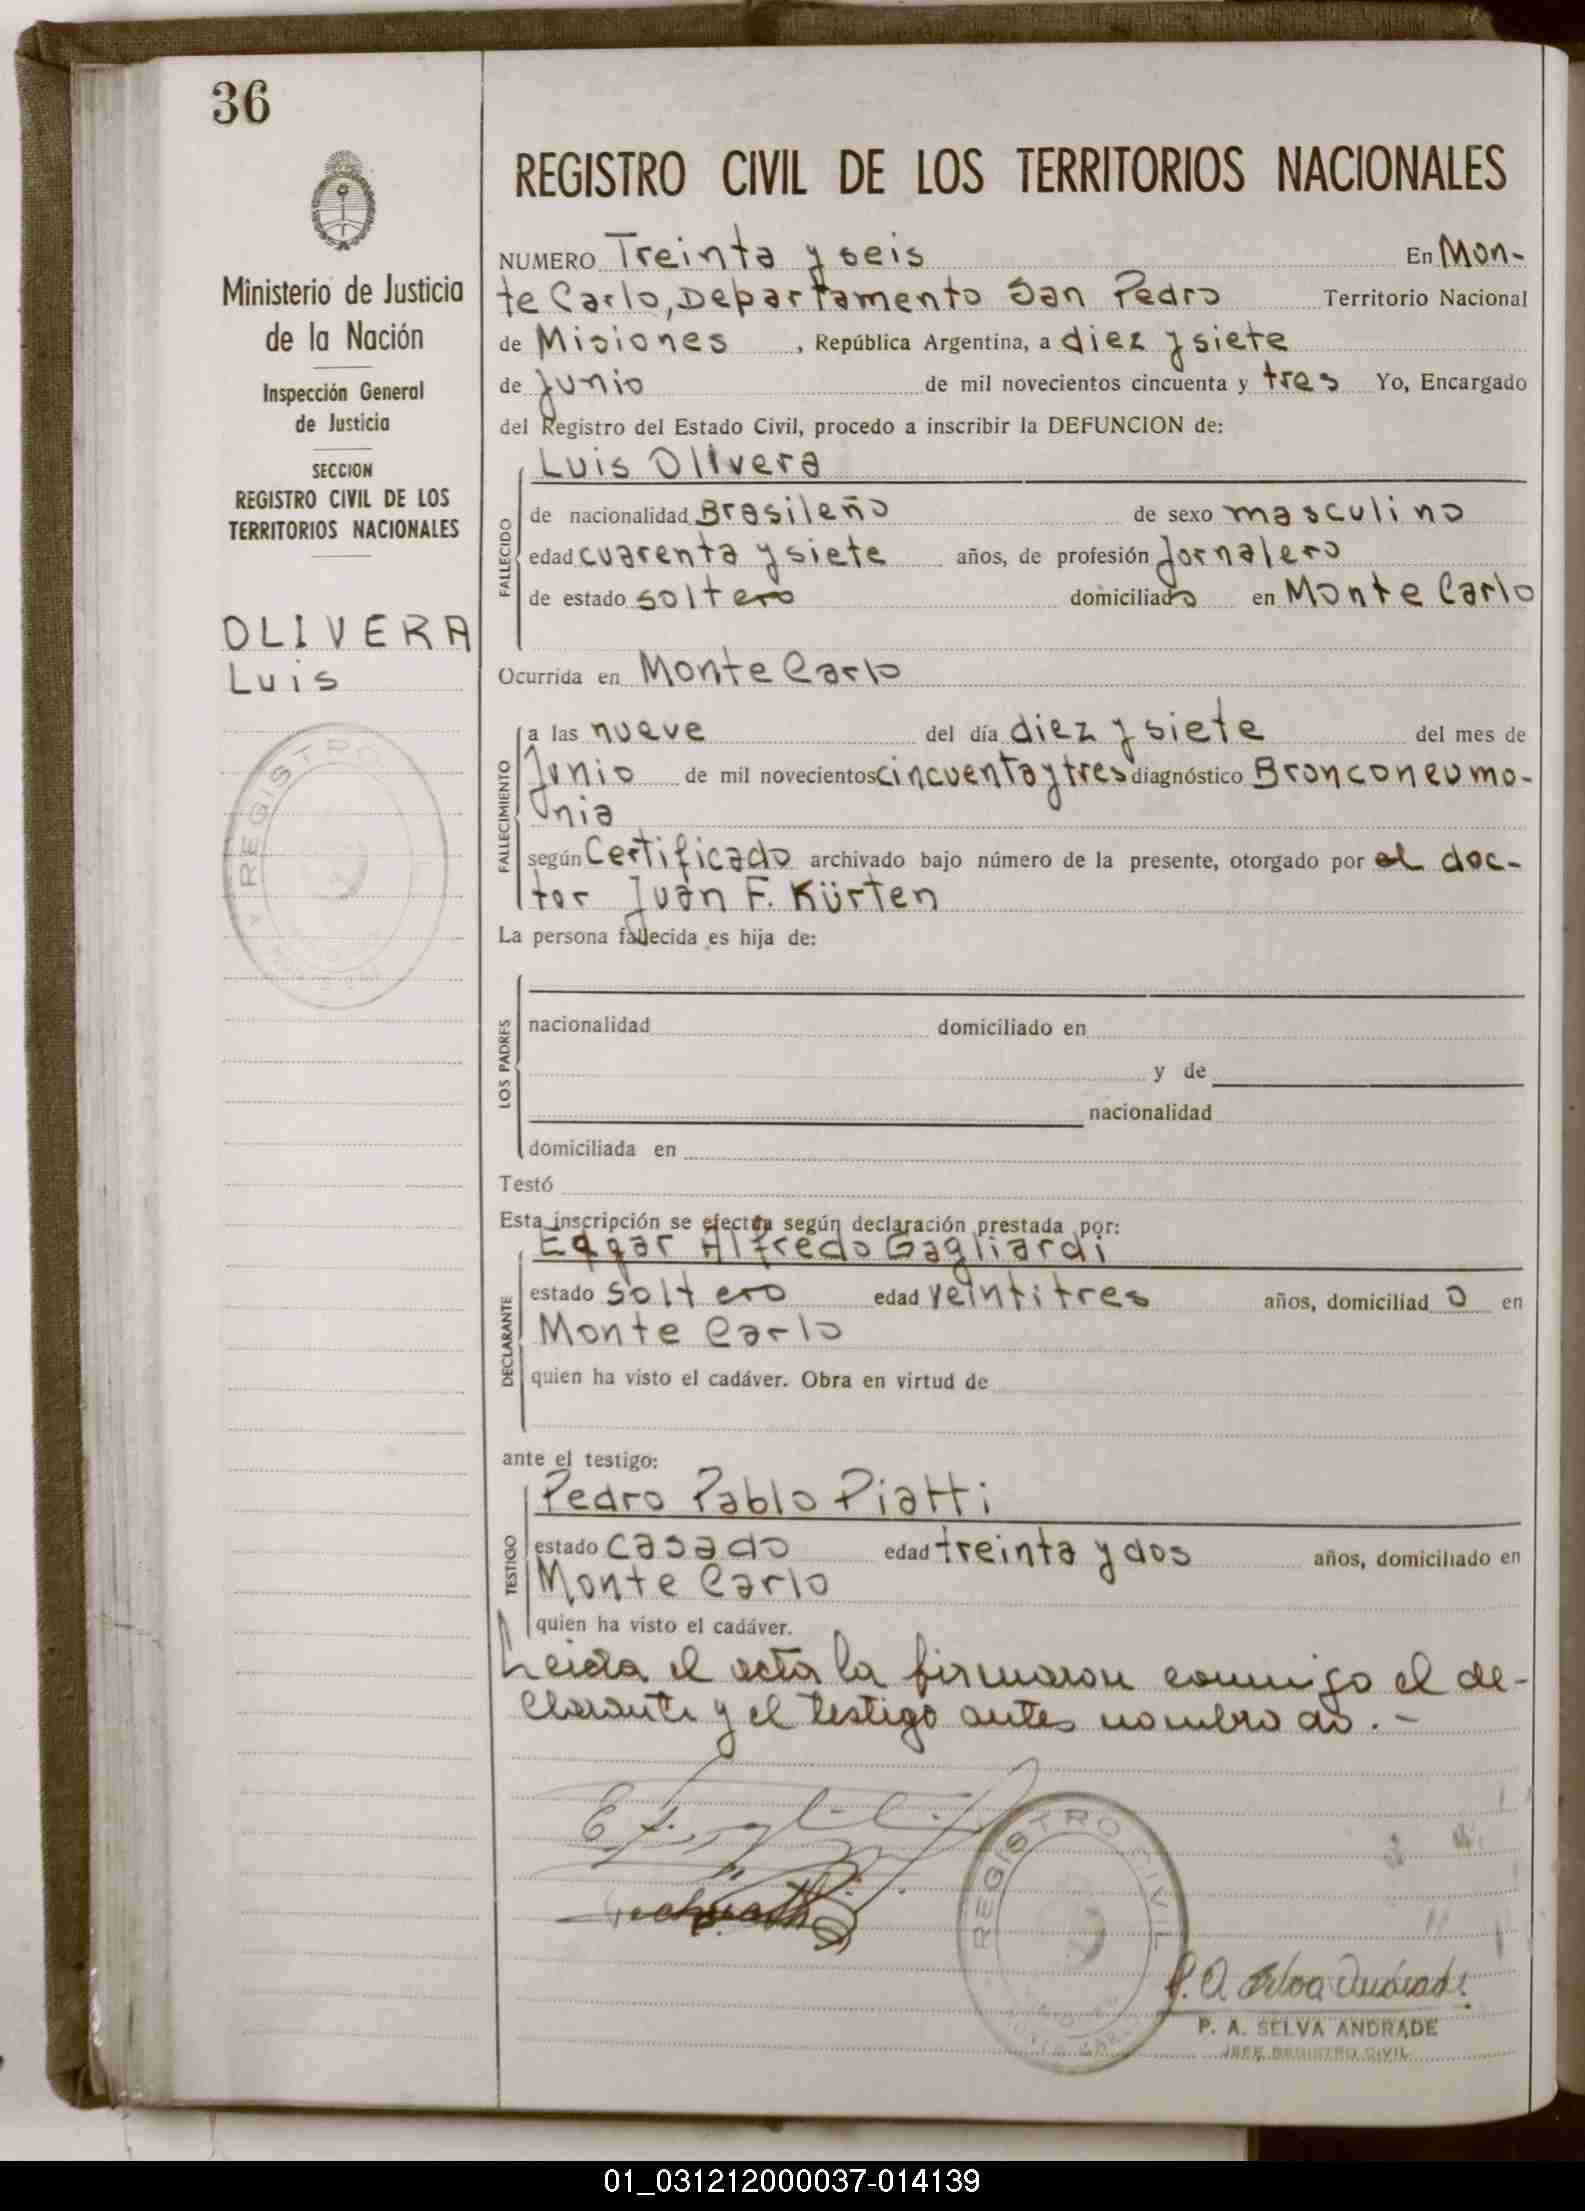 36
Ministerio de Justicia
de la Nación
Inspección General
de Justicia
SECCION
REGISTRO CIVIL DE LOS
TERRITORIOS NACIONALES
OLIVERA
Luis
REGISTRO
REGISTRO CIVIL DE LOS TERRITORIOS NACIONALES
NUMERO Treinta y seis En Mon-
te Carlo, Departamento San Pedro Territorio Nacional
de Misiones , República Argentina, a diez y siete
de Junio de mil novecientos cincuenta y tres Yo, Encargado
del Registro del Estado Civil, procedo a inscribir la DEFUNCION de:
Luis Olivera
FALLECIDO
de nacionalidad Brasileño de sexo masculino
edad cuarenta y siete años, de profesión Jornalero
de estado soltero domiciliado en Monte Carlo
Ocurrida en Monte Carlo
FALLECIMIENTO
a las nueve del día diez y siete del mes de
Junio de mil novecientos cincuenta y tres diagnóstico Bronconeumo-
nia
según Certificado archivado bajo número de la presente, otorgado por el doc-
tor Juan F. Kürten
La persona fallecida es hija de:
LOS PADRES
nacionalidad domiciliado en
y de
nacionalidad
domiciliada en
Testó
Esta inscripción se efectúa según declaración prestada por:
Edgar Alfredo Gagliardi
DECLARANTE
estado soltero edad veintitres años, domiciliad o en
Monte Carlo
quien ha visto el cadáver. Obra en virtud de
ante el testigo:
Pedro Pablo Piatti
TESTIGO
estado casado edad treinta y dos años, domiciliado en
Monte Carlo
quien ha visto el cadáver.
Leida el acta la firmaron conmigo el de-
clarante y el testigo antes nombrado.-
REGISTRO CIVIL
P. A. Selva Andrade
P. A. SELVA ANDRADE
JEFE REGISTRO CIVIL
01_031212000037-014139